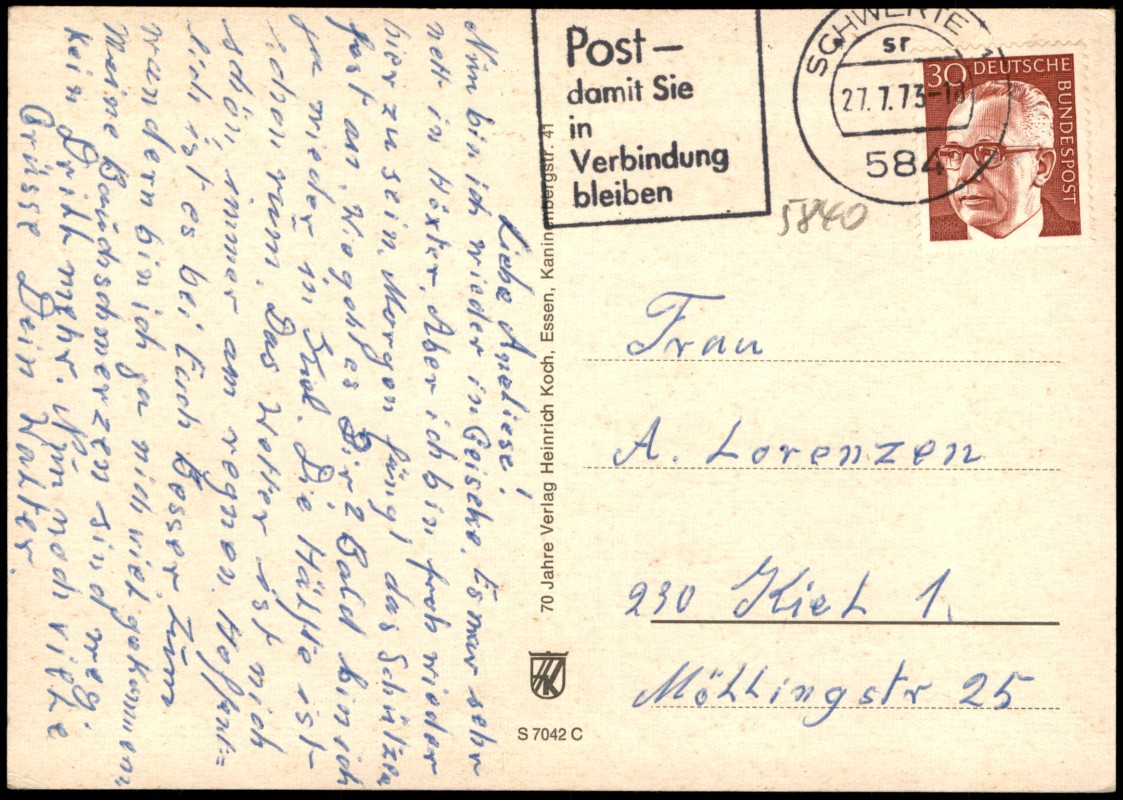 Liebe Aneliese!
Nun bin ich wieder in Geiseke. Es war sehr
nett in Höxter. Aber ich bin froh wieder
hier zu sein. Morgen fängt das Schützen
fest an. Wie geht es Dir? Bald bin ich
ja wieder in Kiel. Die Hälfte ist
schon rum. Das Wetter ist nich
schön, immer am regnen. Hoffent=
lich ist es bei Euch besser. Zum
wandern bin ich ja nich viel gekommen
Meine Bauchschmerzen sind weg.
kein Drik mehr. Nun noch viele
Grüsse Dein Walter.
70 Jahre Verlag Heinrich Koch, Essen, Kaninenbergstr. 41
HK
S 7042 C
Post –
damit Sie
in
Verbindung
bleiben
SCHWERTE
sr
27.7.73-18
584
30 DEUTSCHE
BUNDESPOST
5840
Frau
A. Lorenzen
230 Kiel 1.
Möllingstr 25